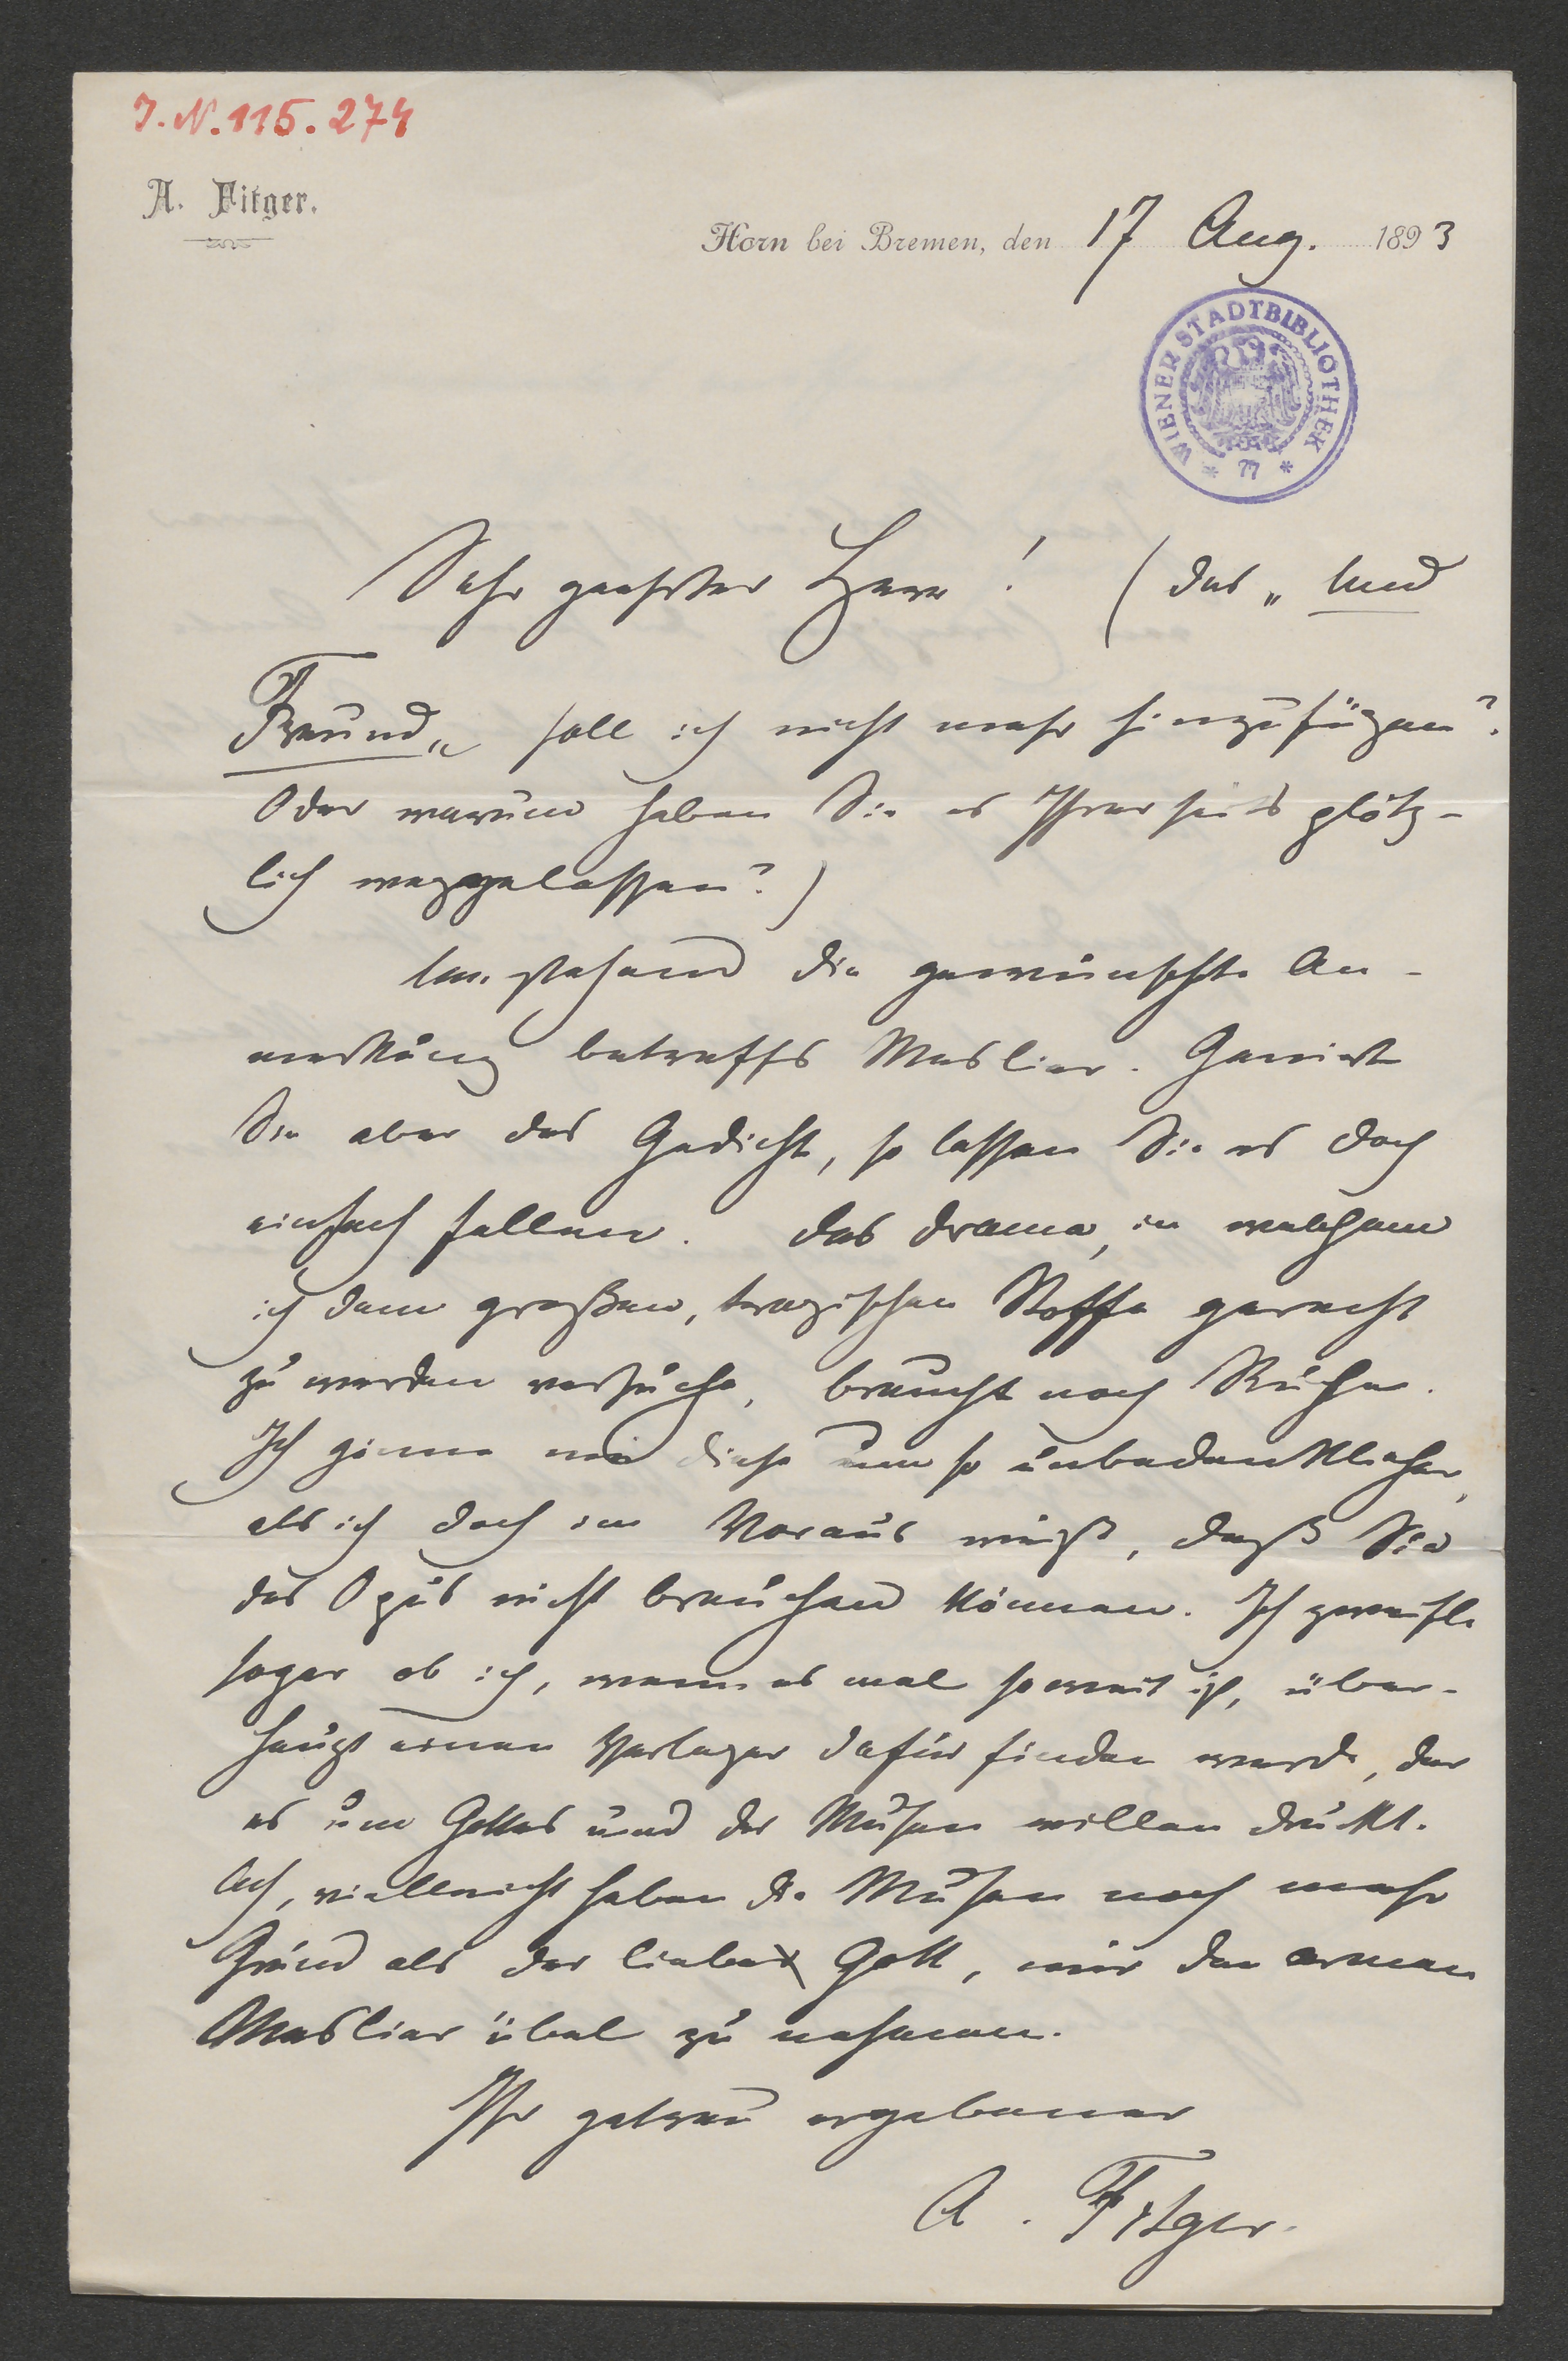 J. N. 115.274
A. Fitger.
Horn bei Bremen, den 17 Aug. 1893
WIENER STADTBIBLIOTHEK
Sehr geehrter Herr! (das „ und
Freund„ soll ich nicht mehr hinzufügen?
Oder warum haben Sie es Ihrerseits plötz-
lich weggelassen?)
stehend die gewünschte An-
merkung betreffs Meslier. Geniert
Sie aber das Gedicht, so lassen Sie es doch
einfach fallen. Das Drama, in welchem
ich dem großen, tragischen Stoffe gerecht
zu werden versuche, braucht noch Ruhe.
Ich gönne mir diese um so unbedenklicher,
als ich doch im Voraus weiß, daß Sie
das Opus nicht brauchen können. Ich zweifle
sogar ob ich, wenn es mal soweit ist, über-
haupt einen Verleger dafür finden werde, der
es um Gottes und der Musen willen druckt.
Ach, vielleicht haben die Musen noch mehr
Grund als der liebe Gott, mir den armen
Meslier übel zu nehmen.
Ihr getreu ergebener
A. Fitger.